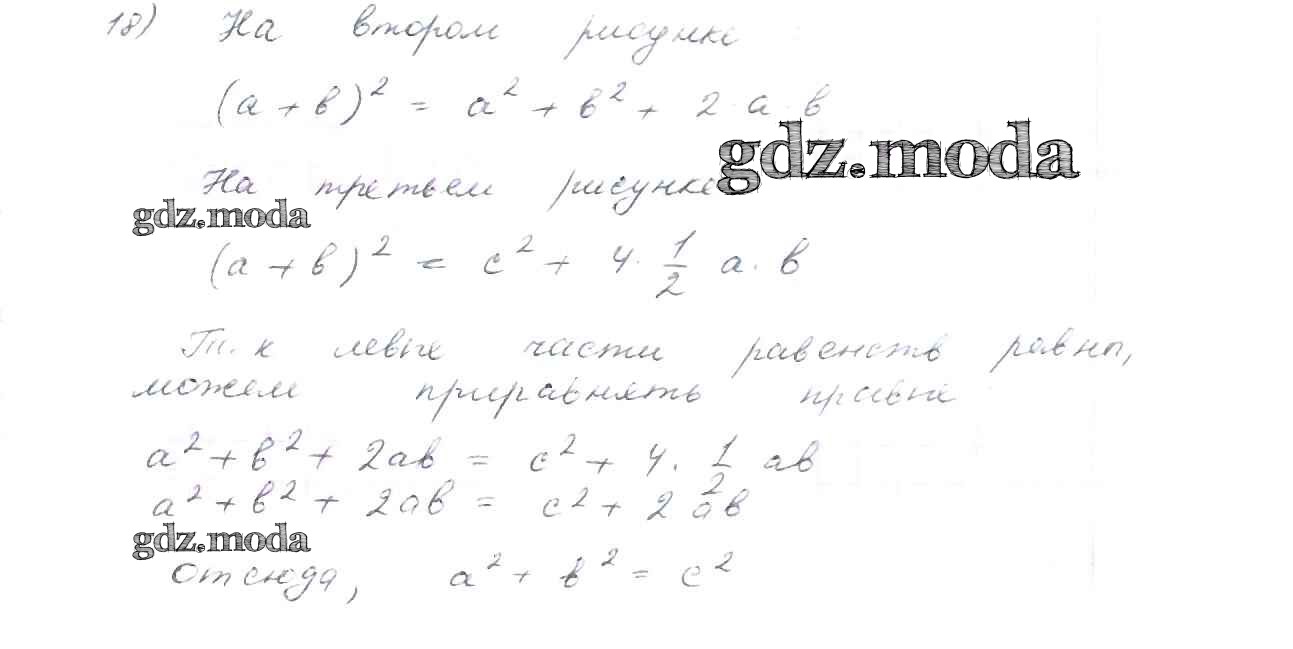 18) На втором рисунке
(a + b)² = a² + b² + 2 · a · b
gdz.moda
На третьем рисунке
gdz.moda
(a + b)² = c² + 4 · 1/2 a · b
Т. к левые части равенств равны,
можем приравнять правые
a² + b² + 2ab = c² + 4 · 1/2 ab
a² + b² + 2ab = c² + 2 ab
gdz.moda
Отсюда, a² + b² = c²